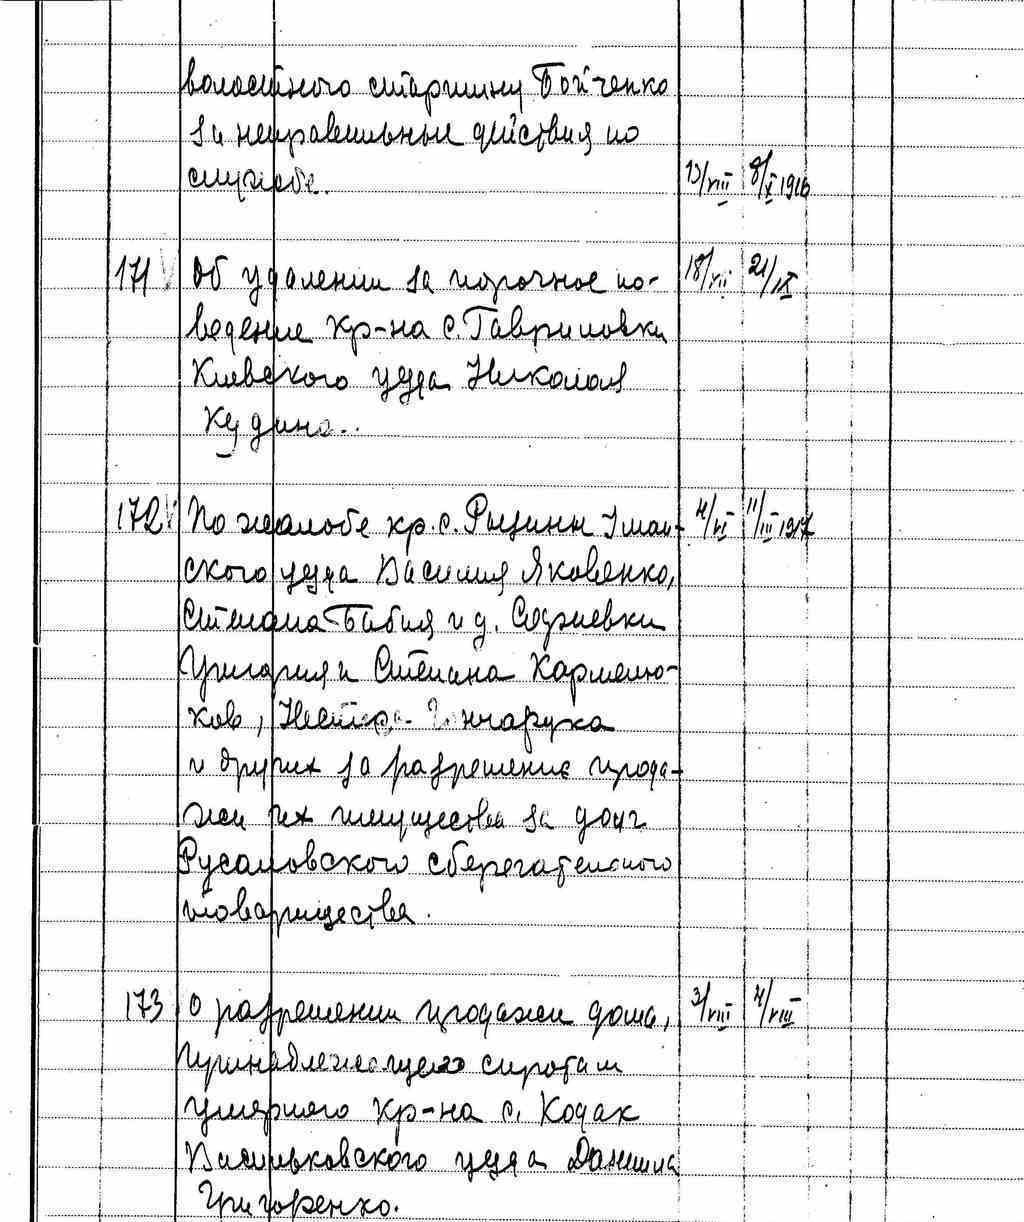 волостного старшину Бойченко
за неправильные действия по
службе. 13/VIII 8/X 1916
171 Об удалении за порочное по- 18/VII 21/IX
ведение кр-на с. Гавриловки
Киевского уезда Николая
Кудина.
172 По жалобе кр. с. Рыжины Уман- 4/VI 11/III 1917
ского уезда Василия Яковенко,
Степана Бабия и д.
Григория и Степана Кармелю-
ков, Нестера Гончарука
и других за разрешение прода-
жи их имущества за долг
Русаловского сберегательного
товарищества.
173 О разрешении продажи дома, 3/VIII 4/VIII
принадлежащего сиротам
умершего кр-на с. Кодак
Васильковского уезда Даниила
Григоренко.